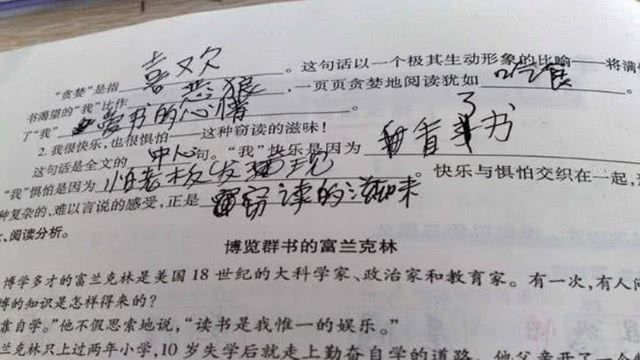 "贪婪"是指喜欢。这句话以一个极其生动形象的比喻——将满
书渴望的"我"比作恶狼,一页页贪婪地阅读犹如吃食
了"我"爱书的心情。
2. 我很快乐,也很惧怕——这种窃读的滋味!
这句话是全文的中心句。"我"快乐是因为看了书
"我"惧怕是因为怕老板发现。快乐与惧怕交织在一起,
种复杂的、难以言说的感受,正是窃读的滋味
、阅读分析。
博览群书的富兰克林
博学多才的富兰克林是美国 18 世纪的大科学家、政治家和教育家。有一次,有人问
博的知识是怎样得来的?
靠自学。"他不假思索地说,"读书是我惟一的娱乐。"
兰克林只上过两年小学,10 岁失学后就走上勤奋自学的道路